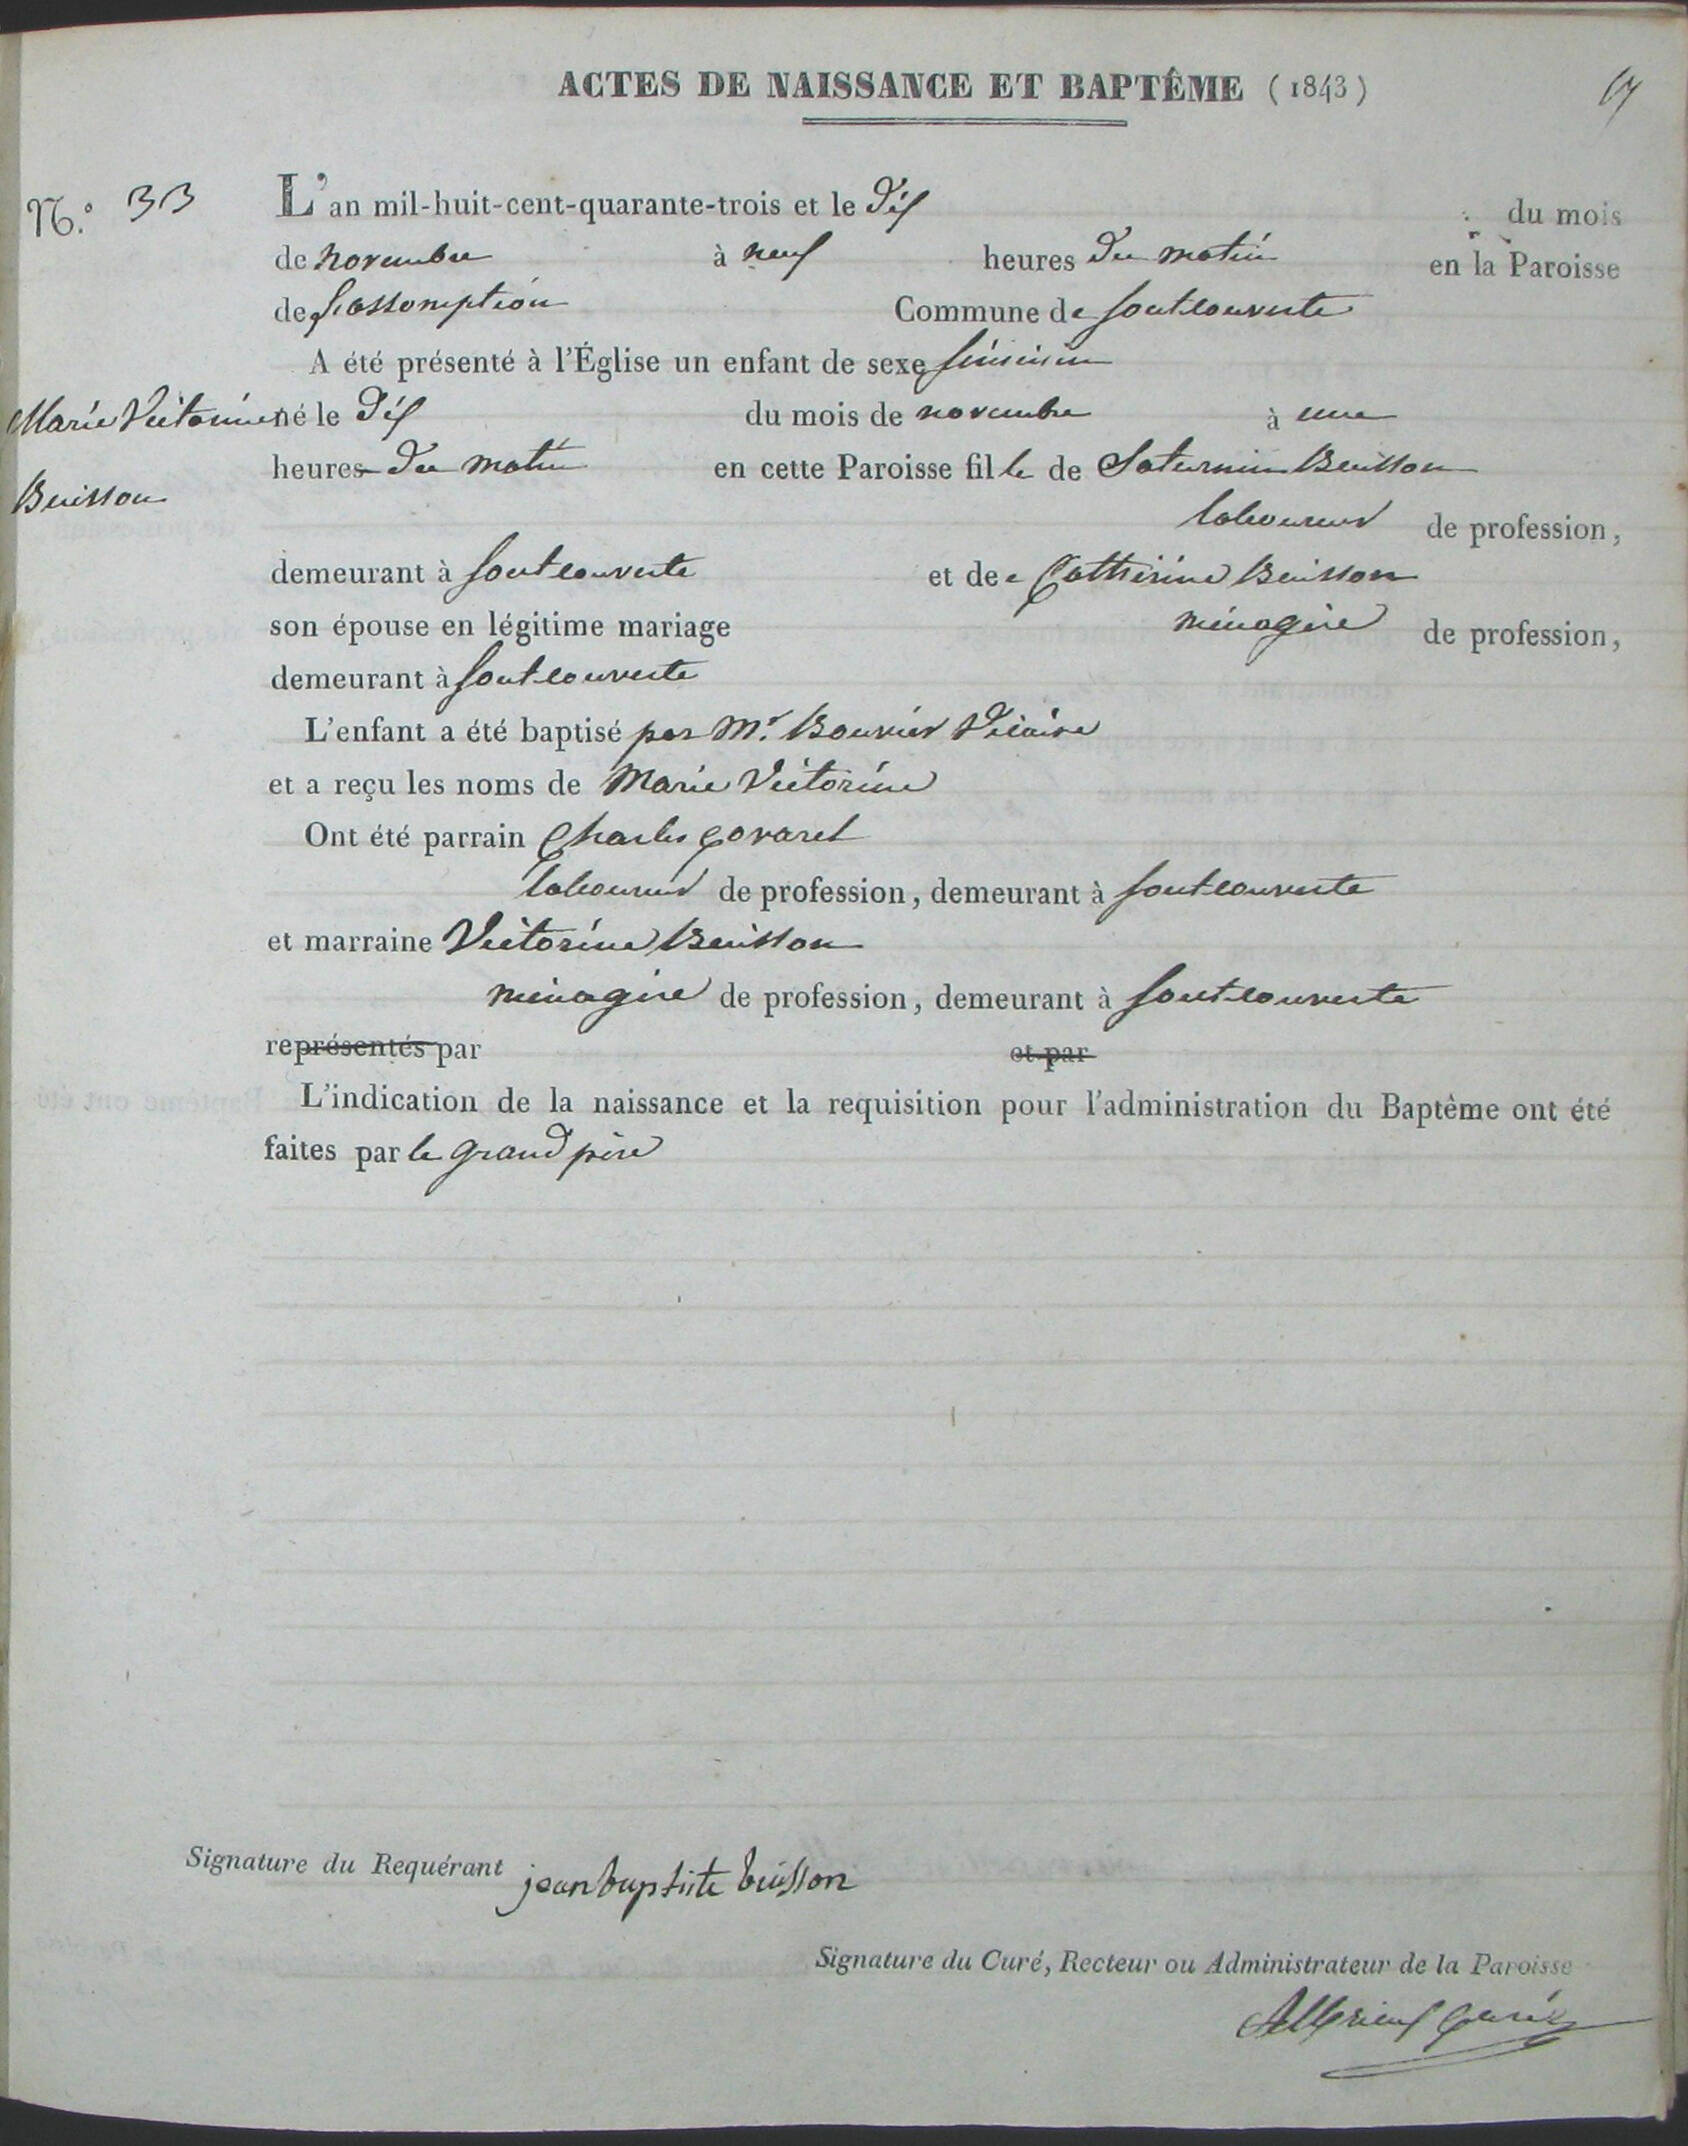 ACTES DE NAISSANCE ET BAPTÊME (1843)
N.° 33
L'an mil-huit-cent-quarante-trois et le dix du mois
de novembre à neuf heures du matin en la Paroisse
de l'assomption Commune de fontcouverte
A été présenté à l'Église un enfant de sexe féminin
Marie Victorine
Buisson
né le dix du mois de novembre à une
heures du matin en cette Paroisse fille de Saturnin Buisson
laboureur de profession,
demeurant à fontcouverte et de Catherine Buisson
son épouse en légitime mariage ménagère de profession,
demeurant à fontcouverte
L'enfant a été baptisé par Mr. Bouvier Vicaire
et a reçu les noms de Marie Victorine
Ont été parrain Charles Covarel
laboureur de profession, demeurant à fontcouverte
et marraine Victorine Buisson
ménagère de profession, demeurant à fontcouverte
représentés par et par
L'indication de la naissance et la requisition pour l'administration du Baptême ont été
faites par le grand père
Signature du Requérant jean baptiste buisson
Signature du Curé, Recteur ou Administrateur de la Paroisse
Curé